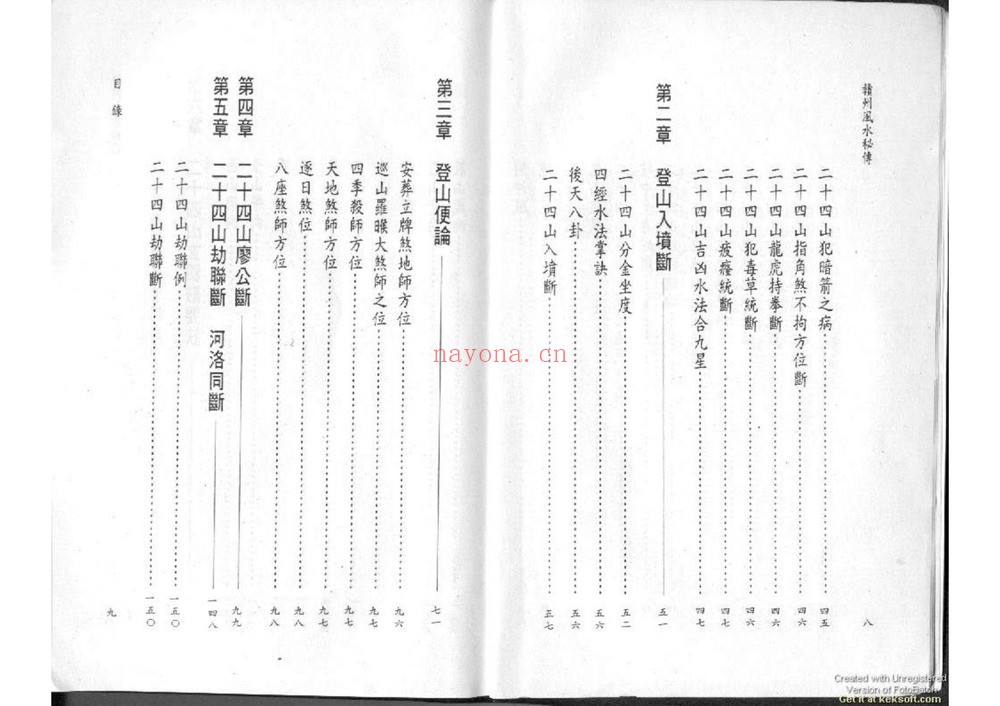 贛州風水秘傳
八
二十四山犯暗箭之病 四五
二十四山指角煞不拘方位斷 四六
二十四山龍虎持拳斷 四六
二十四山犯毒草統斷 四六
二十四山疲癃統斷 四七
二十四山吉凶水法合九星 四七
第二章 登山入墳斷 五一
二十四山分金坐度 五二
四經水法掌訣 五六
後天八卦 五六
二十四山入墳斷 五七
第三章 登山便論 七一
安葬立牌煞地師方位 九六
巡山羅睺大煞師之位 九七
四季殺師方位 九七
天地煞師方位 九七
逐日煞位 九八
八座煞師方位 九八
第四章 二十四山廖公斷 九九
第五章 二十四山劫聯斷 河洛同斷 一四八
二十四山劫聯例 一五〇
二十四山劫聯斷 一五〇
目錄
九
nayona.cn
Created with Unregistered
Version of FotoBatch
Get it at keksoft.com